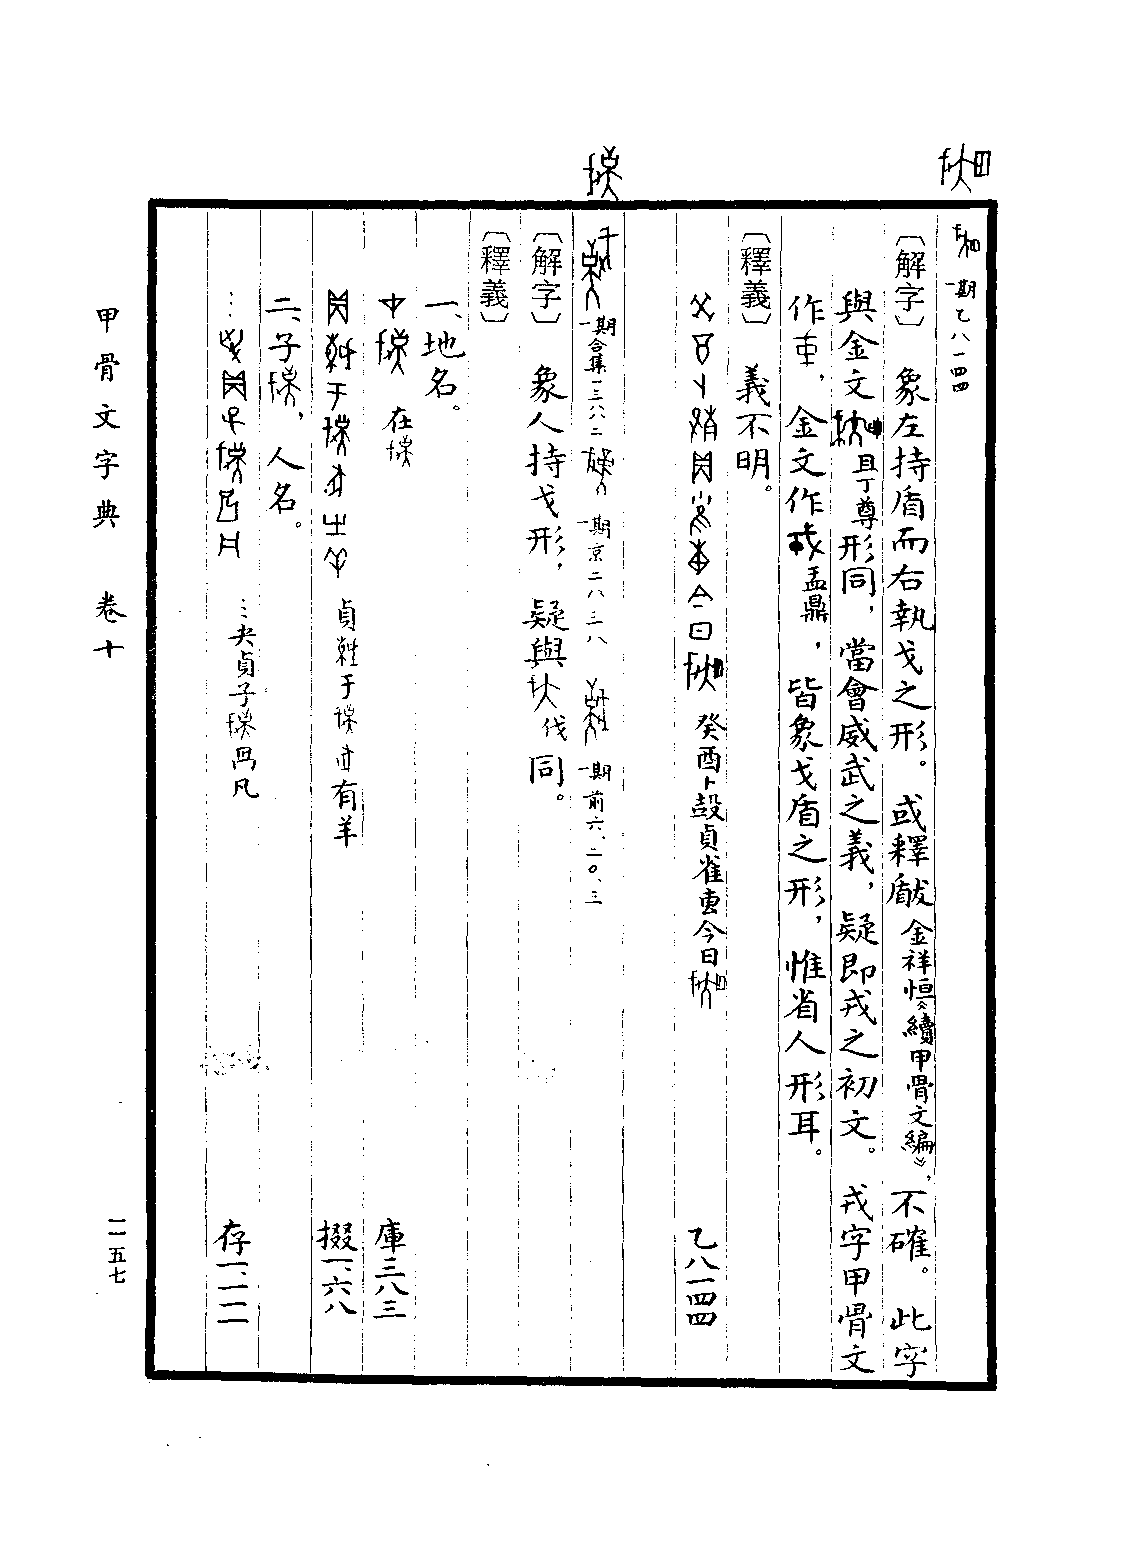 一期乙八一四四
〔解字〕 象左持盾而右執戈之形。或釋瞂金祥恒《續甲骨文編》，不確。此字
與金文且丁尊形同，當會威武之義，疑即戎之初文。戎字甲骨文
作，金文作盂鼎，皆象戈盾之形，惟省人形耳。
〔釋義〕 義不明。
癸酉卜㱿貞雀叀今日 乙八一四四
一期合集一三八二 一期京二八三八 一期前六、二〇、三
〔解字〕 象人持戈形，疑與伐同。
〔釋義〕
一、地名。
在 庫三八三
貞于有羊 掇一、六八
二、子，人名。
…央貞子凡 存一、一二
甲骨文字典 卷十
一一五七